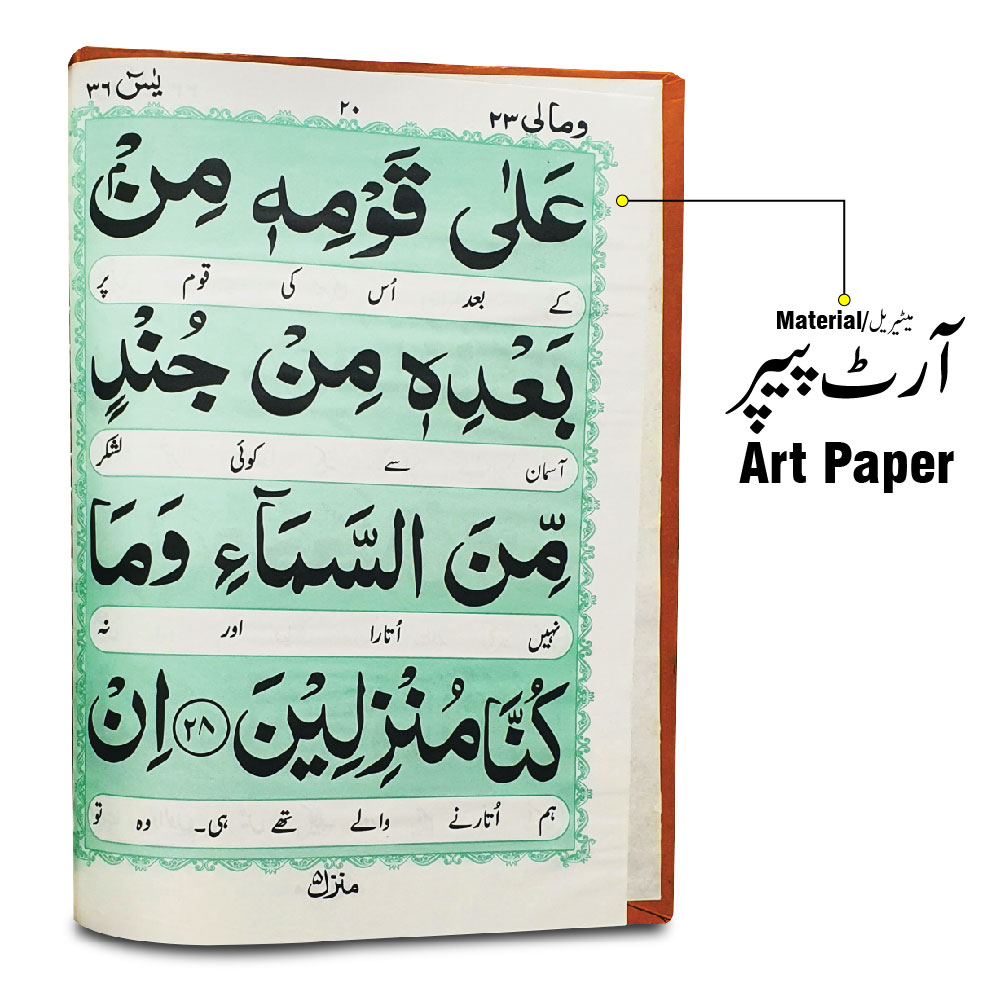 ومالی ۲۳
۲۰
یٰسٓ ۳۶
عَلٰی قَوْمِهٖ مِنْۢ
کے بعد اُس کی قوم پر
بَعْدِهٖ مِنْ جُنْدٍ
آسمان سے کوئی لشکر
مِّنَ السَّمَآءِ وَمَا
نہیں اُتارا اور نہ
كُنَّا مُنْزِلِيْنَ ۲۸ اِنْ
ہم اُتارنے والے تھے ہی۔ وہ تو
منزل ۵
Material/میٹیریل
آرٹ پیپر
Art Paper